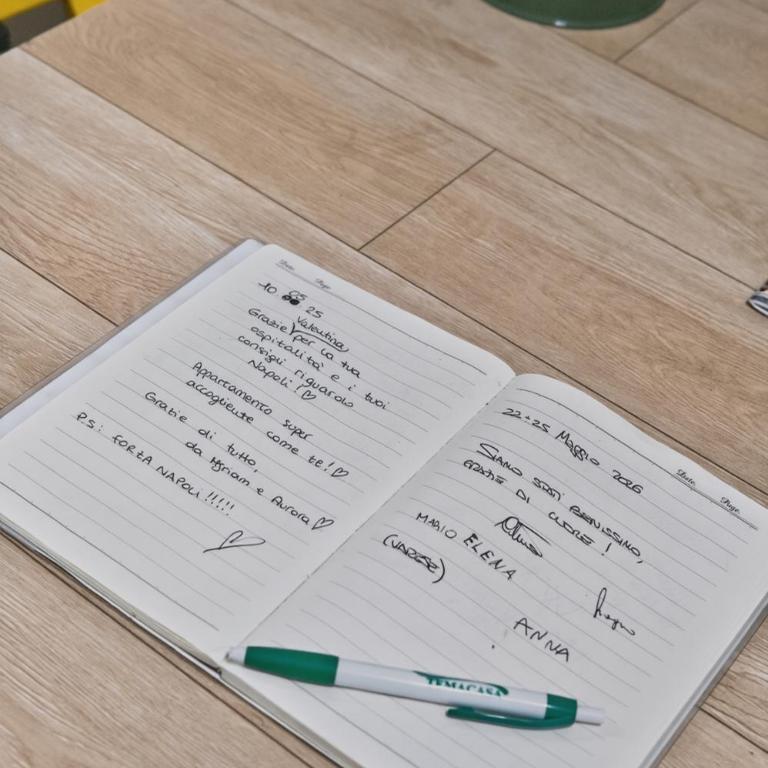 Date. Page.
10.05 25
Valentina
Grazie per la tua
ospitalità e i tuoi
consigli riguardo
Napoli!♡
Appartamento super
accogliente come te!♡
Grazie di tutto,
da Myriam e Aurora♡
P.S: FORZA NAPOLI!!!!!
Date. Page.
22÷25 Maggio 2026
SIAMO STATI BENISSIMO,
GRAZIE DI CUORE!
MARIO ELENA
(VARESE)
ANNA
TEMACASA